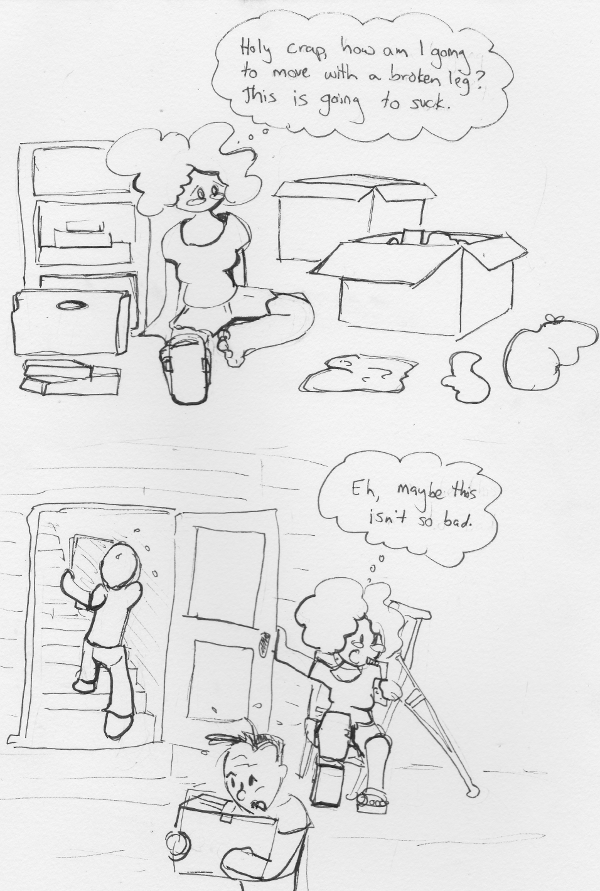 Holy crap, how am I going
to move with a broken leg?
This is going to suck.
Eh, maybe this
isn't so bad.